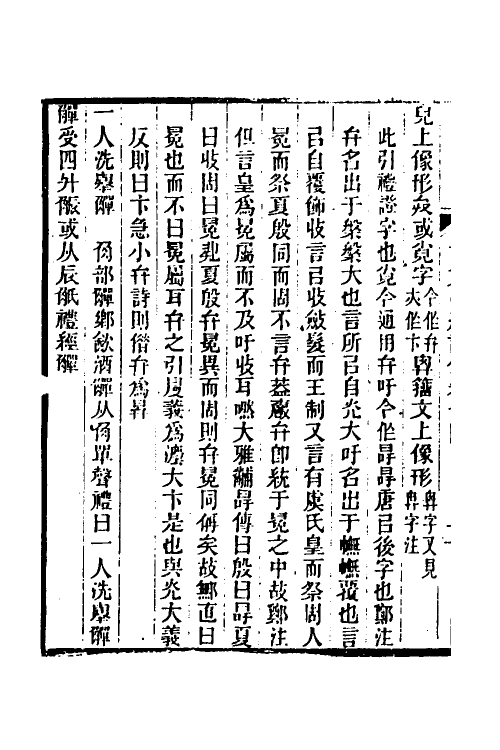 皃上像形𢍏或覍字今作弁夫作卞𢍍籒文上像形𢍍字又見𢍍字注
此引禮證字也覍今通用弁吁今作冔冔唐㠯後字也鄭注
弁名出于槃槃大也言所㠯自光大吁名出于幠幠覆也言
㠯自覆飾收言㠯收斂髮而王制又言有虞氏皇而祭周人
冕而祭夏殷同而周不言弁葢㒸弁卽統于冕之中故鄭注
但言皇爲冕屬而不及吁收耳嘫大雅黼冔傳曰殷曰冔夏
曰收周曰冕㱿夏殷弁冕異而周則弁冕同偁矣故鄭直曰
冕也而不曰冕屬耳弁之引𢍰義爲灋大卞是也與光大義
反則曰卞急小弁詩則僃弁爲昪
一人洗舉觶　角部觶鄉飮酒觶从角單聲禮曰一人洗舉觶
觶受四升觗或从辰觗禮經觶